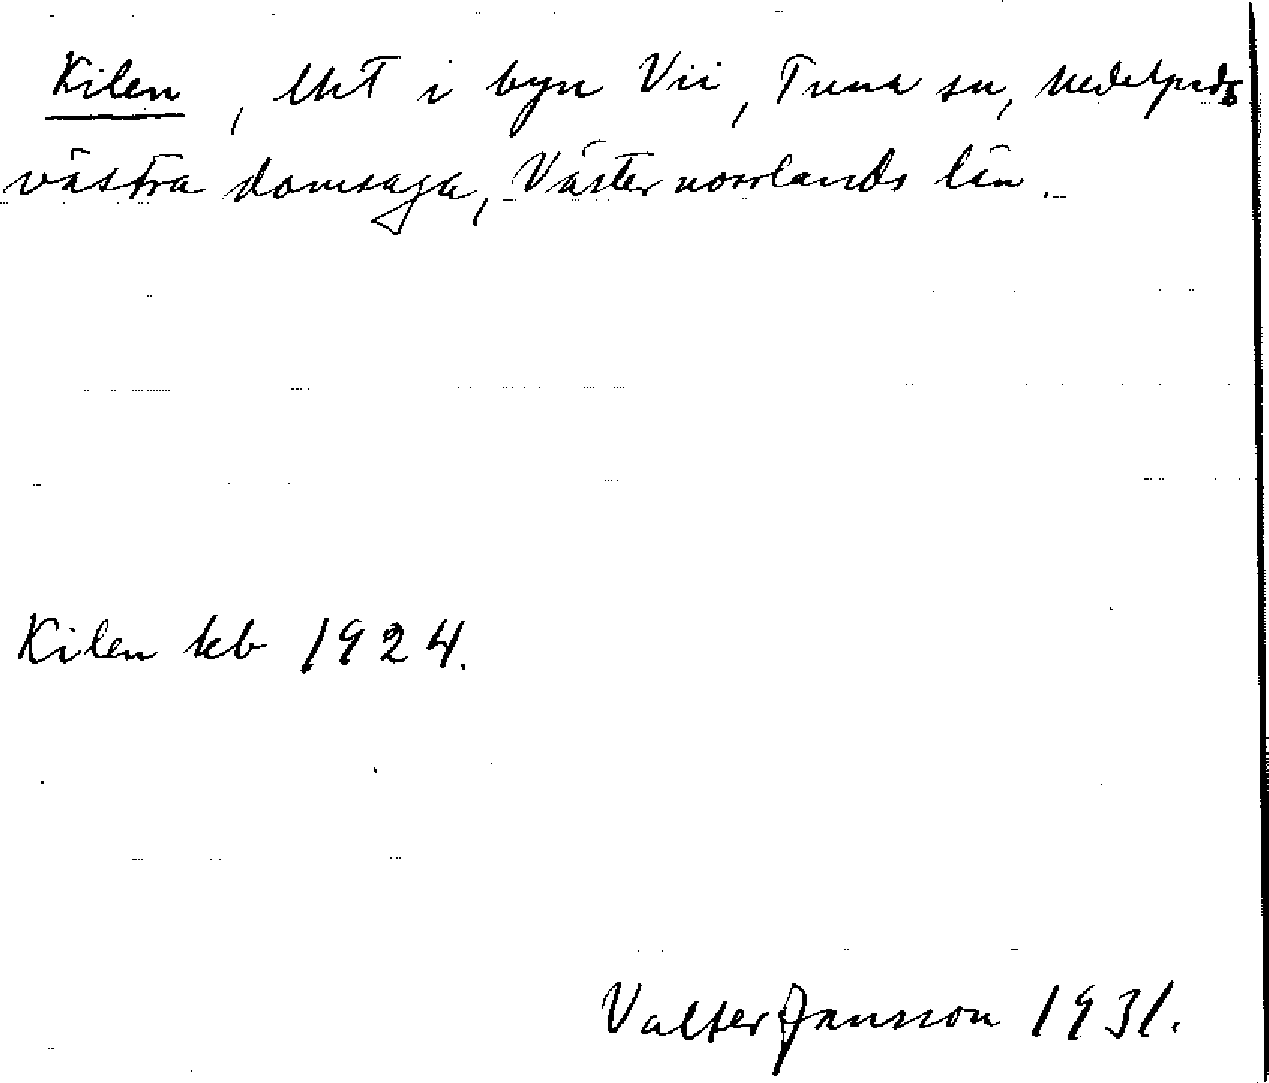 Kilen, lht i byn Vii, Tuna sn, Medelpads
västra domsaga, Västernorrlands län.
Kilen kb 1924.
Valter Jansson 1931.